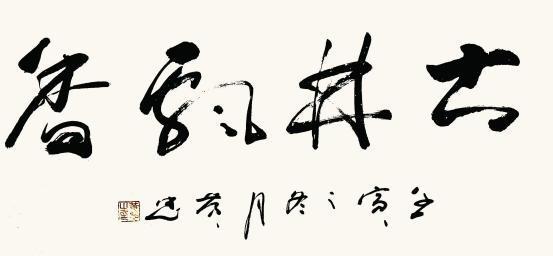 古井飘香
壬寅之冬月黄